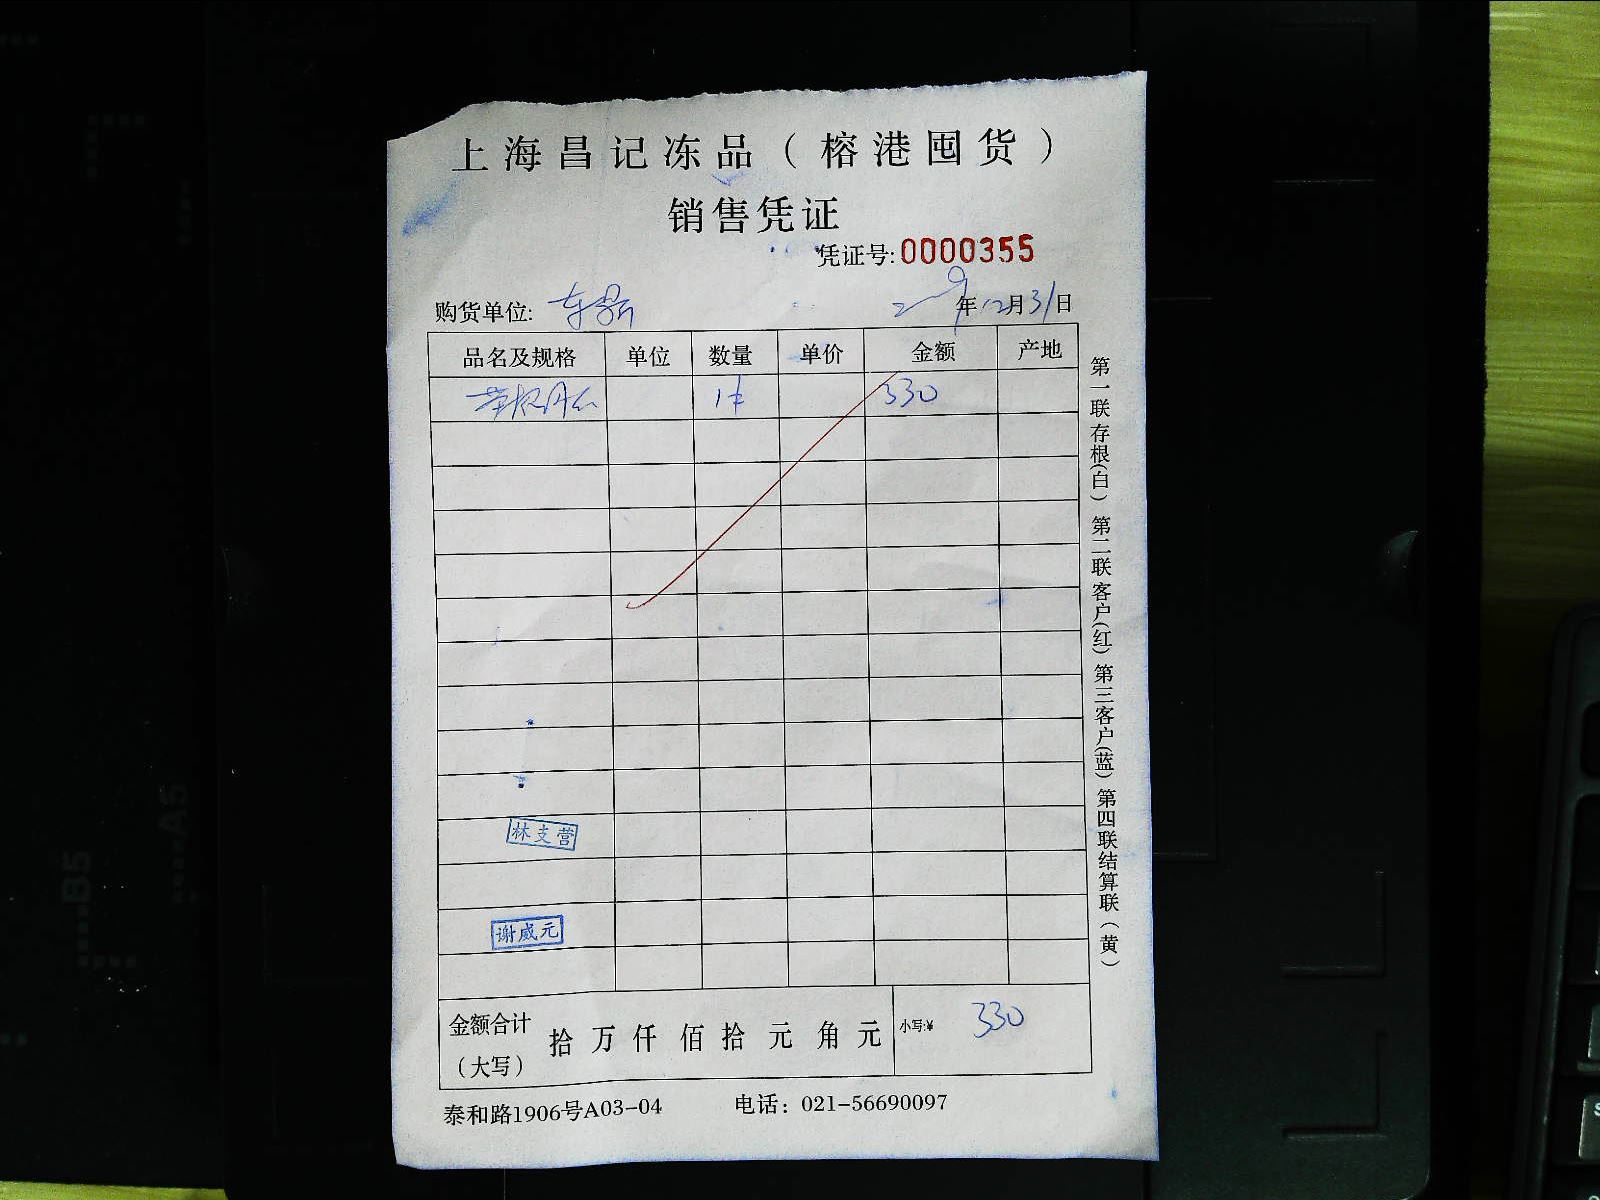 上海昌记冻品（榕港囤货）
销售凭证
凭证号:0000355
购货单位:
年12月31日
品名及规格 单位 数量 单价 金额 产地
1件 330
林支营
谢威元
金额合计（大写） 拾 万 仟 佰 拾 元 角 元 小写:¥ 330
泰和路1906号A03-04 电话：021-56690097
第一联存根(白) 第二联客户(红) 第三客户(蓝) 第四联结算联(黄)
B5
A5